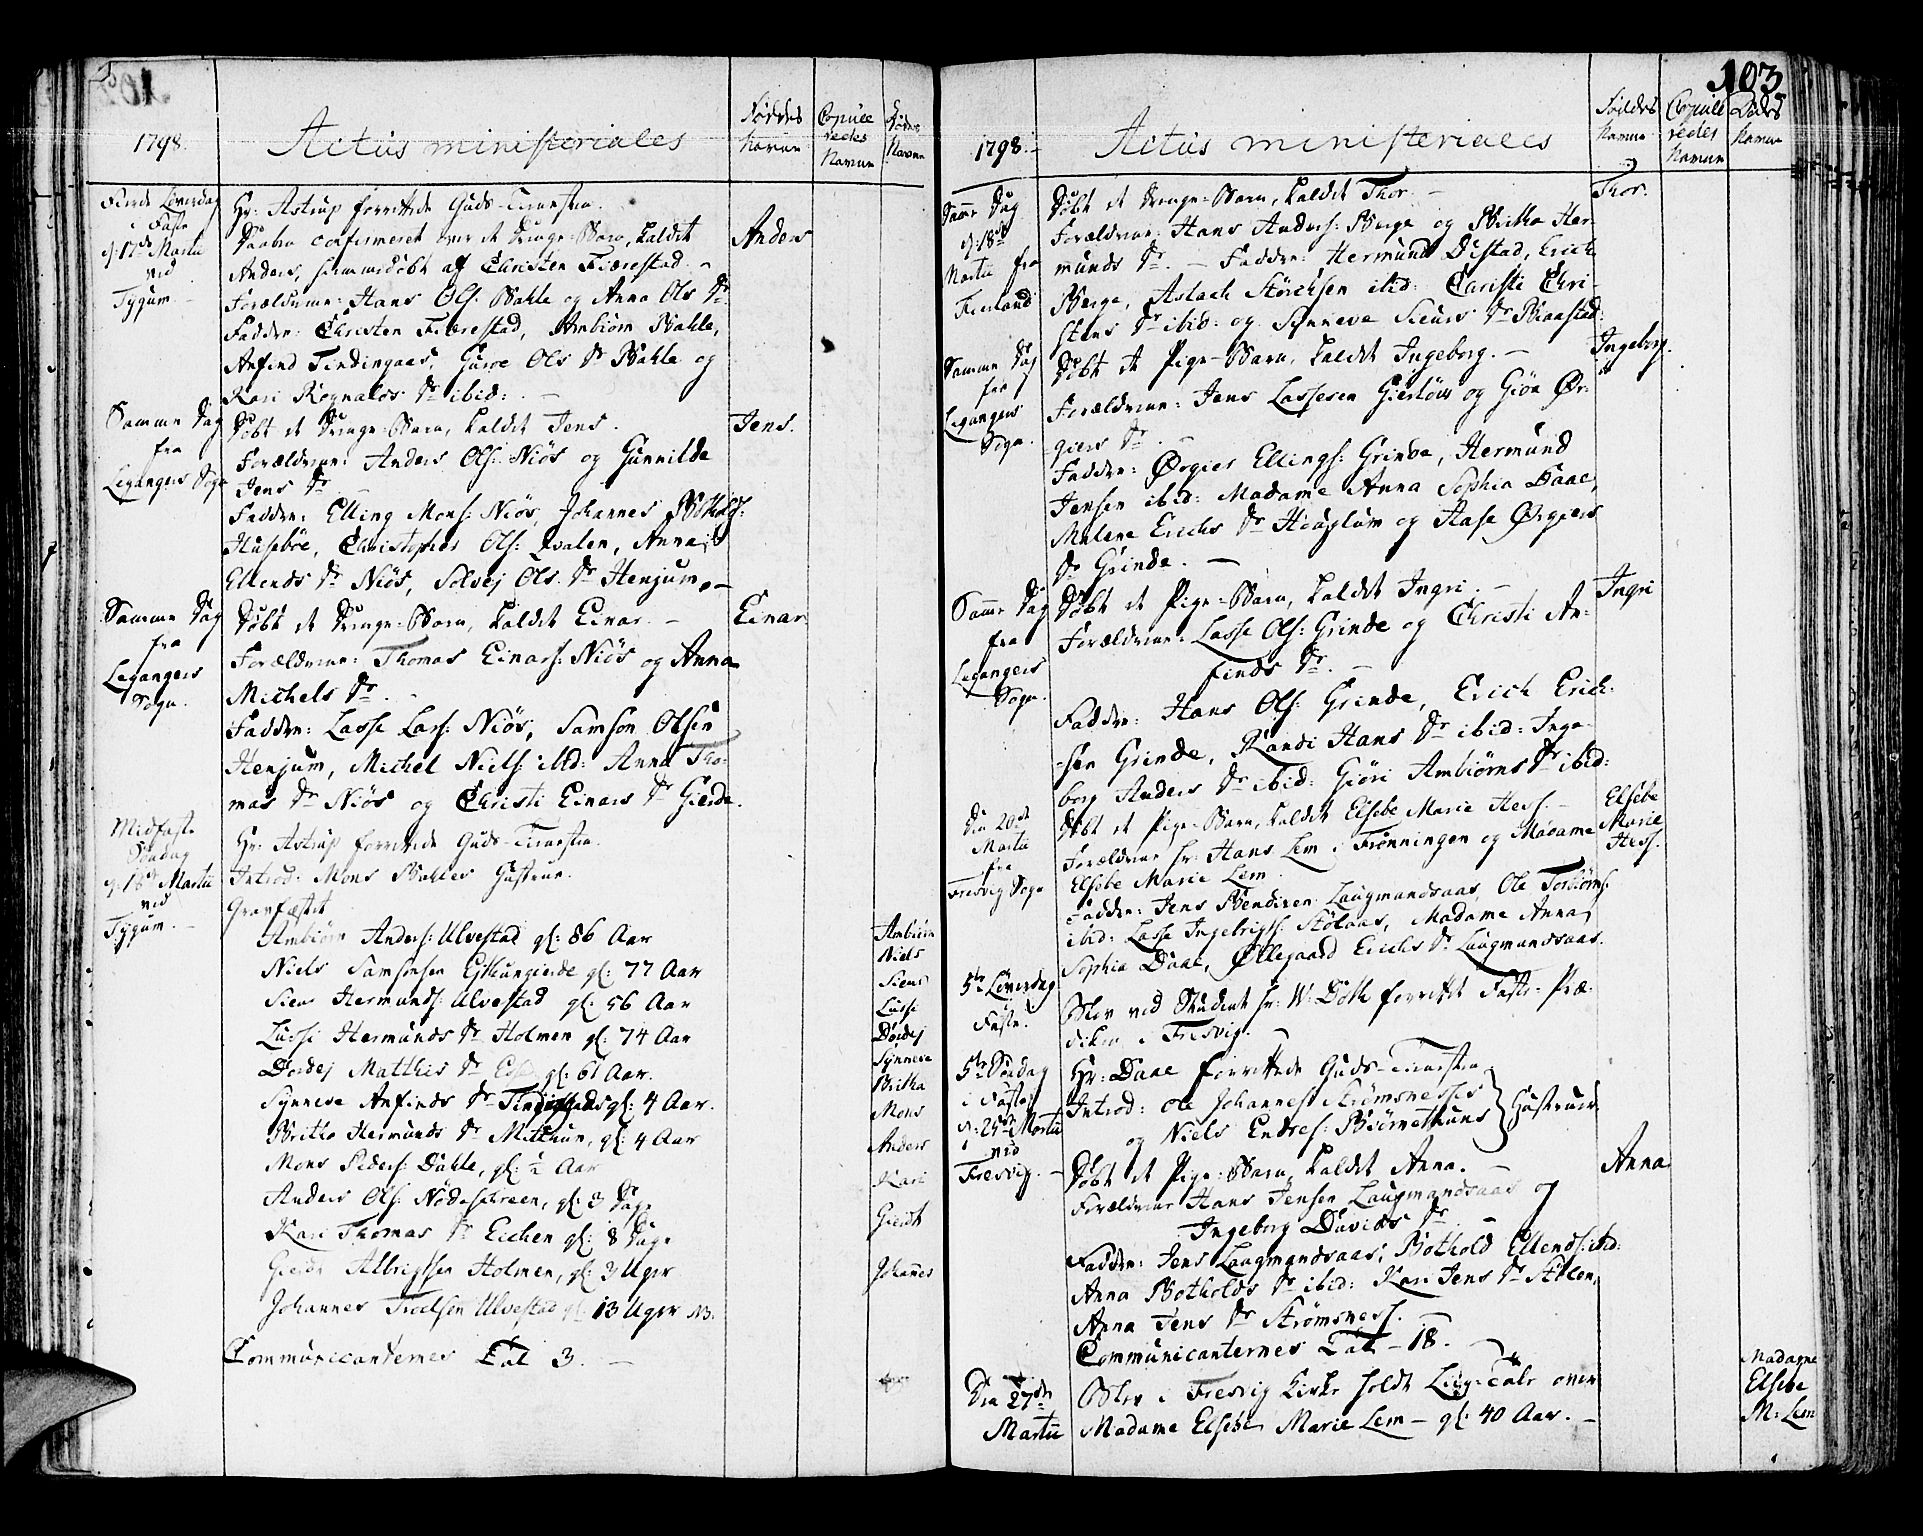 1798.
Actus ministeriales
Føddes Navne
Copulleredes Navne
Dødes Navne
Fierde Løverdag
i Faste
d: 17de Martii
ved
Tygum
Hr: Astrup forrettede Guds-Tienesten.
Daaben confirmeret over et Drenge-Barn, kaldet
Anders, hiemmedøbt af Christen Fierestad. -
Forældrene: Hans Ols: Bahle og Anna Ols Dr.
Faddere: Christen Fierestad, Ambiørn Bahle,
Anfind Tendingaas, Guroe Ols Dr Bahle og
Kari Rognalds Dr ibid: -
Anders
Samme Dag
fra
Leganger Sogn
Døbt et Drenge-Barn, kaldet Jens.
Forældrene: Anders Ols: Niøs og Gunnilde
Jens Dr
Faddere: Elling Mons: Niøs, Johannes Botholds:
Husebøe, Christopher Ols: Qvalen, Anna
Ellends Dr Niøs, Solvej Ols Dr Henjum. -
Jens.
Samme Dag
fra
Legangers
Sogn.
Døbt et Drenge-Barn, kaldet Einar. -
Forældrene: Thomas Einars: Niøs og Anna
Michels Dr. -
Faddere: Lasse Lars: Niøs, Samson Olsen
Henjum, Michel Niels: ibid: Anna Tho-
mas Dr Niøs og Christi Einars Dr Gierde.
Einar
Midfaste
Søndag
d: 18de Martii
ved
Tygum. -
Hr: Astrup forrettede Guds-Tienesten.
Introd: Mons Bahles Hustrue.
Gravfæstet
Ambiørn Anders: Ulvestad gl: 86 Aar
Niels Samsonsen gl: 77 Aar
Siur Hermunds: Ulvestad gl: 56 Aar
Lussi Hermunds Dr Holmen gl: 74 Aar
Dordej Matthis Dr gl: 61 Aar.
Synneve Anfinds Dr gl: 4 Aar.
Britha Hermunds Dr Mitthun, gl: 4 Aar
Mons Peders: Dahle, gl: ½ Aar
Anders Ols: Nødeschreen, gl: 3 Dage
Kari Thomas Dr Eichen gl: 8 Dage
Gierdt Albrigtsen Holmen, gl: 3 Uger
Johannes Troelsen Ulvestad gl: 13 Uger NB.
Communicanternes Tal 3. -
Ambiørn
Niels
Siur
Lussi
Dordej
Synneve
Britha
Mons
Anders
Kari
Gierdt
Johannes
103
1798. -
Actus ministeriales
Føddes Navne
Copulleredes Navne
Dødes Navne
Samme Dag
d: 18de
Martii fra
Fierland
Døbt et Drenge-Barn, kaldet Thor. -
Forældrene: Hans Anders: Berge og Britha Her-
munds Dr. - Faddere: Hermund Distad, Erich
Berge, Aslach Størchsen ibid: Christi Chri-
stens Dr ibid: og Synneve Siurs Dr Baastad:
Thor.
Samme Dag
fra
Legangers
Sogn.
Døbt et Pige-Barn, kaldet Ingeborg. -
Forældrene: Jens Lassesen Gierløw og Giøa Ør-
giers Dr.
Faddere: Ørgier Ellings: Grinde, Hermund
Jensen ibid: Madame Anna Sophia Daae,
Malene Erichs Dr Houglum og Aase Ørgiers
Dr Grinde. -
Ingeborg.
Samme Dag
fra
Legangers
Sogn.
Døbt et Pige-Barn, kaldet Ingri. -
Forældrene: Lasse Ols: Grinde og Christi An-
finds Dr. -
Faddere: Hans Ols: Grinde, Erich Erich-
sen Grinde, Randi Hans Dr ibid: Inge-
borg Anders Dr ibid: Giøri Ambiørns Dr ibid:
Ingri
Den 20de
Martii
fra
Fresvig Sogn
Døbt et Pige-Barn, kaldet Elsebe Marie Hess. -
Forældrene Hr: Hans Lem i Frønningen og Madame
Elsebe Marie Lem.
Faddere: Jens Bendixen Laugmandsaas, Ole Torbiørns:
ibid: Lasse Ingebrigts: Stølaas, Madame Anna
Sophia Daae, Øllegaard Erichs Dr Laugmandsaas.
Elsebe
Marie
Hess.
5te Løverdag
i
Faste.
Blev ved Student Hr: W: Both forrettet Faste-Præ-
diken i Fresvig. -
5te Søndag
i Faste
d: 25de Martii
ved
Fresvig. -
Hr: Daae forrettede Guds-Tienesten
Introd: Ole Johannes: Strømsnesses
og Niels Endres: Biørnethuns
Hustruer
Døbt et Pige-Barn, kaldet Anna. -
Forældrene Hans Jensen Laugmandsaas og
Ingeborg Davids Dr. -
Faddere: Jens Laugmandsaas, Bothold Ellends: ibid:
Anna Botholds Dr ibid: Kari Jens Dr Stølen,
Anna Jens Dr Strømsness. -
Communicanternes Tal - 18.
Anna
Den 27de
Martii
Blev i Fresvig Kirke holdt Liig-Tale over
Madame Elsebe Marie Lem - gl: 40 Aar. -
Madame
Elsebe
M: Lem